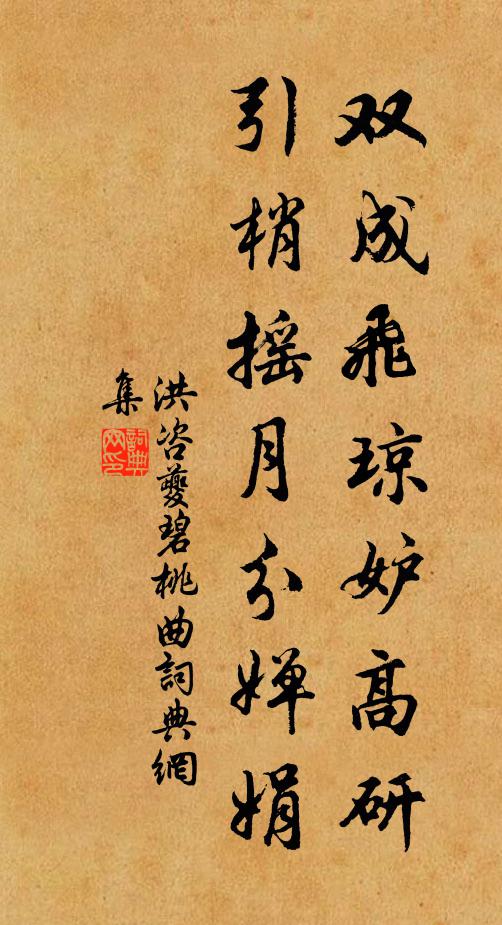 双成飛琼妒高研
引梢摇月分婵娟
洪咨夔碧桃曲詞典網
集
詞典
网印